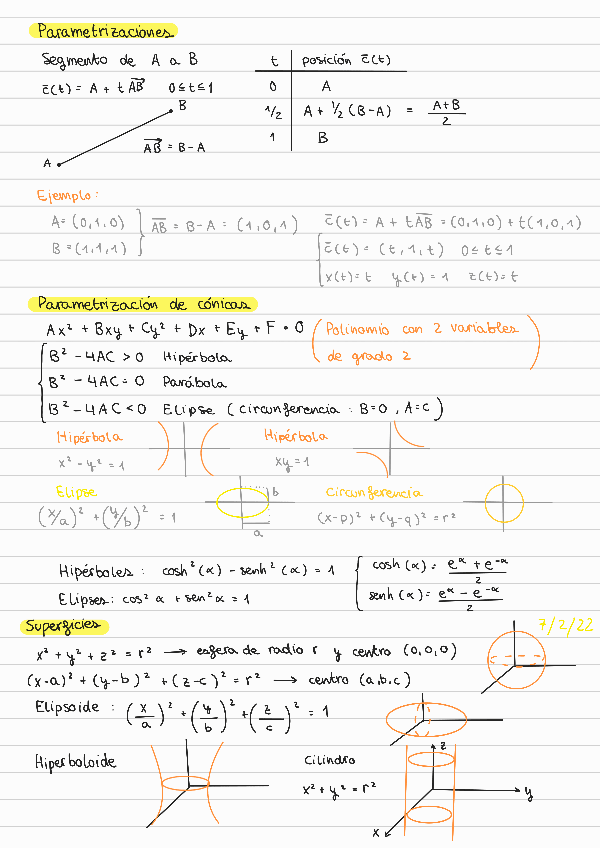 Parametrizaciones
Segmento de A a B
c̄(t) = A + t AB⃗   0 ≤ t ≤ 1
B
A
AB⃗ = B - A
t   posición c̄(t)
0   A
1/2   A + 1/2 (B-A) = (A+B)/2
1   B
Ejemplo:
A = (0,1,0)
B = (1,1,1)
AB⃗ = B - A = (1,0,1)
c̄(t) = A + t AB⃗ = (0,1,0) + t(1,0,1)
c̄(t) = (t,1,t)   0 ≤ t ≤ 1
x(t) = t   y(t) = 1   z(t) = t
Parametrización de cónicas
Ax² + Bxy + Cy² + Dx + Ey + F = 0 (Polinomio con 2 variables
de grado 2)
B² - 4AC > 0 Hipérbola
B² - 4AC = 0 Parábola
B² - 4AC < 0 Elipse (circunferencia : B=0, A=C)
Hipérbola
x² - y² = 1
Hipérbola
xy = 1
Elipse
(x/a)² + (y/b)² = 1
b
a
Circunferencia
(x-p)² + (y-q)² = r²
Hipérboles : cosh²(α) - senh²(α) = 1
cosh(α) = (e^α + e^-α)/2
Elipses: cos² α + sen² α = 1
senh(α) = (e^α - e^-α)/2
Superficies
7/2/22
x² + y² + z² = r² → esfera de radio r y centro (0,0,0)
(x-a)² + (y-b)² + (z-c)² = r² → centro (a,b,c)
Elipsoide : (x/a)² + (y/b)² + (z/c)² = 1
Hiperboloide
Cilindro
x² + y² = r²
z
y
x